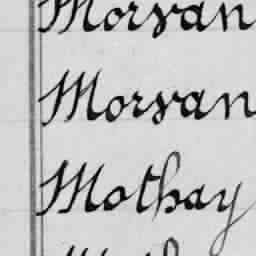 Morvan
Morvan
Mothay